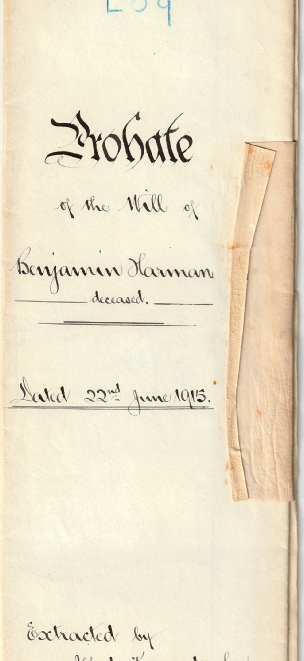 Probate
of the Will of
Benjamin Harman
deceased.
Dated 22nd June 1915.
Extracted by